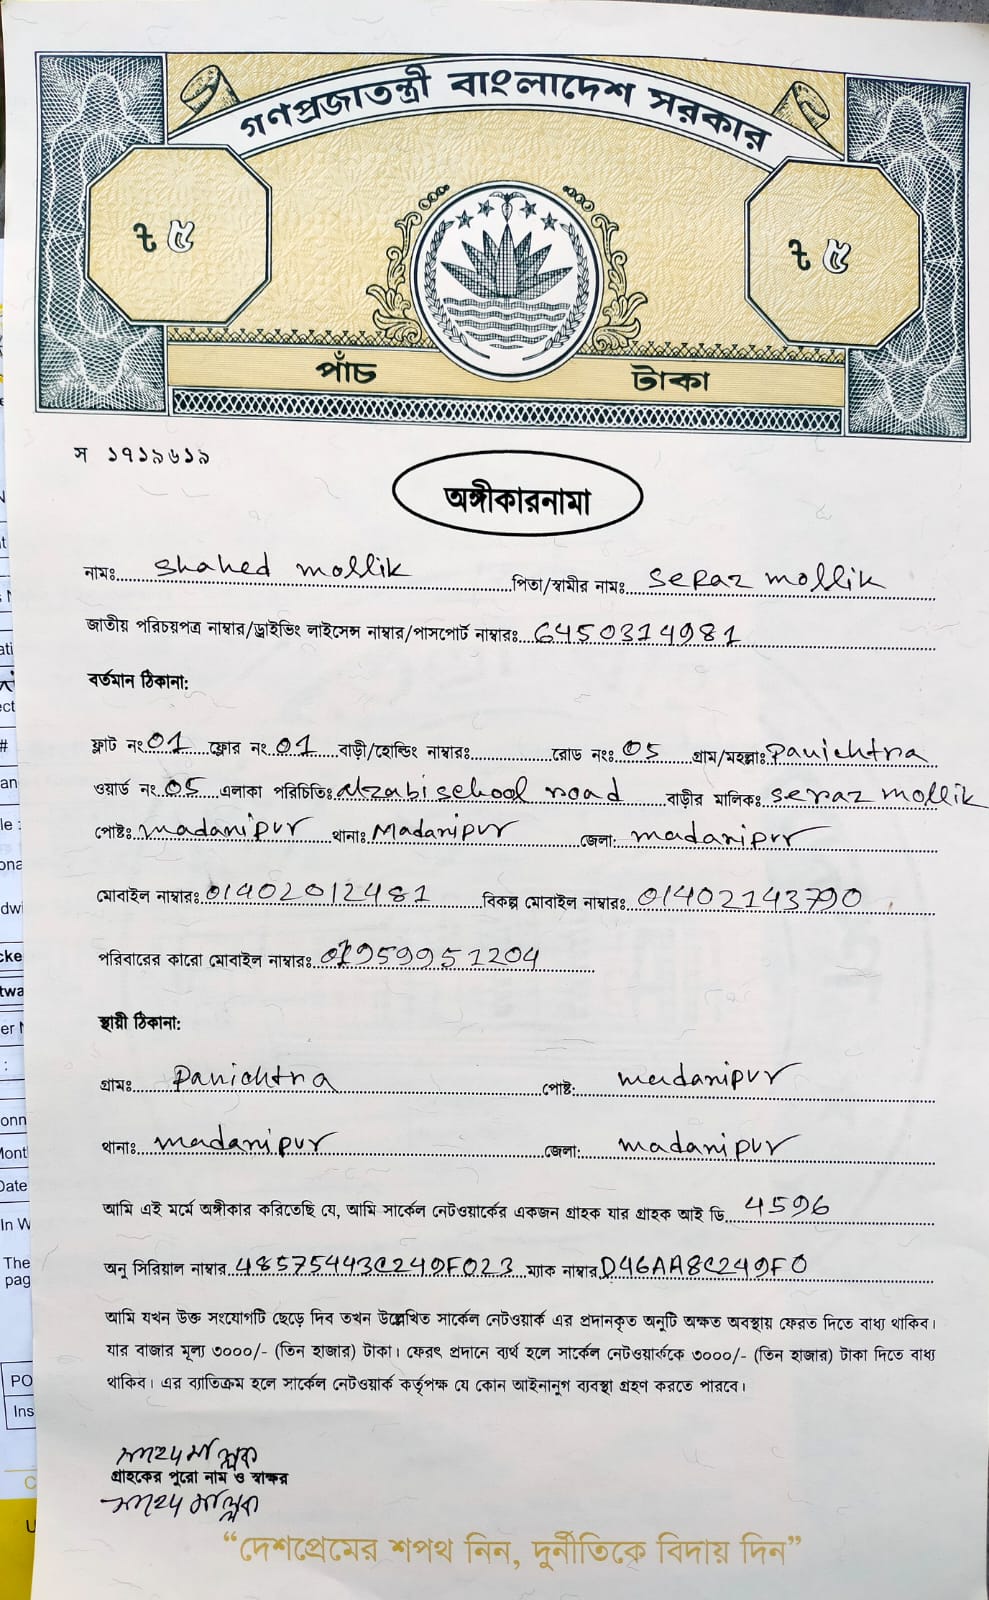 গণপ্রজাতন্ত্রী বাংলাদেশ সরকার
৳ ৫
৳ ৫
পাঁচ টাকা
স ১৭১৯৬১৯
অঙ্গীকারনামা
নামঃ Shahed mollik পিতা/স্বামীর নামঃ Seraz mollik
জাতীয় পরিচয়পত্র নাম্বার/ড্রাইভিং লাইসেন্স নাম্বার/পাসপোর্ট নাম্বারঃ 6450314981
বর্তমান ঠিকানা:
ফ্লাট নং 01 ফ্লোর নং 01 বাড়ী/হোল্ডিং নাম্বারঃ রোড নংঃ 05 গ্রাম/মহল্লাঃ Panichtra
ওয়ার্ড নং 05 এলাকা পরিচিতিঃ alzabi school road বাড়ীর মালিকঃ seraz mollik
পোষ্টঃ madaripur থানাঃ Madaripur জেলা: madaripur
মোবাইল নাম্বারঃ 01402012481 বিকল্প মোবাইল নাম্বারঃ 01402143790
পরিবারের কারো মোবাইল নাম্বারঃ 01959951204
স্থায়ী ঠিকানা:
গ্রামঃ Panichtra পোষ্ট: madaripur
থানাঃ madaripur জেলা: madaripur
আমি এই মর্মে অঙ্গীকার করিতেছি যে, আমি সার্কেল নেটওয়ার্কের একজন গ্রাহক যার গ্রাহক আই ডি 4596
অনু সিরিয়াল নাম্বার 48575443C249F023 ম্যাক নাম্বার D46AA8C249F0
আমি যখন উক্ত সংযোগটি ছেড়ে দিব তখন উল্লেখিত সার্কেল নেটওয়ার্ক এর প্রদানকৃত অনুটি অক্ষত অবস্থায় ফেরত দিতে বাধ্য থাকিব।
যার বাজার মূল্য ৩০০০/- (তিন হাজার) টাকা। ফেরৎ প্রদানে ব্যর্থ হলে সার্কেল নেটওয়ার্ককে ৩০০০/- (তিন হাজার) টাকা দিতে বাধ্য
থাকিব। এর ব্যাতিক্রম হলে সার্কেল নেটওয়ার্ক কর্তৃপক্ষ যে কোন আইনানুগ ব্যবস্থা গ্রহণ করতে পারবে।
গ্রাহকের পুরো নাম ও স্বাক্ষর
“দেশপ্রেমের শপথ নিন, দুর্নীতিকে বিদায় দিন”